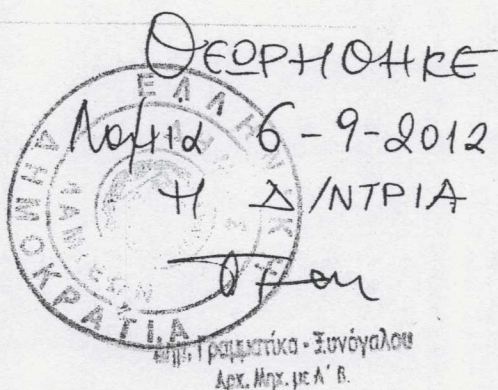 ΘΕΩΡΗΘΗΚΕ
Λαμία 6-9-2012
Η Δ/ΝΤΡΙΑ
ΕΛΛΗΝΙΚΗ
ΔΗΜΟΚΡΑΤΙΑ
Δημ. Γραμματίκα - Ξυνόγαλου
Αρχ. Μηχ. με Α' β.